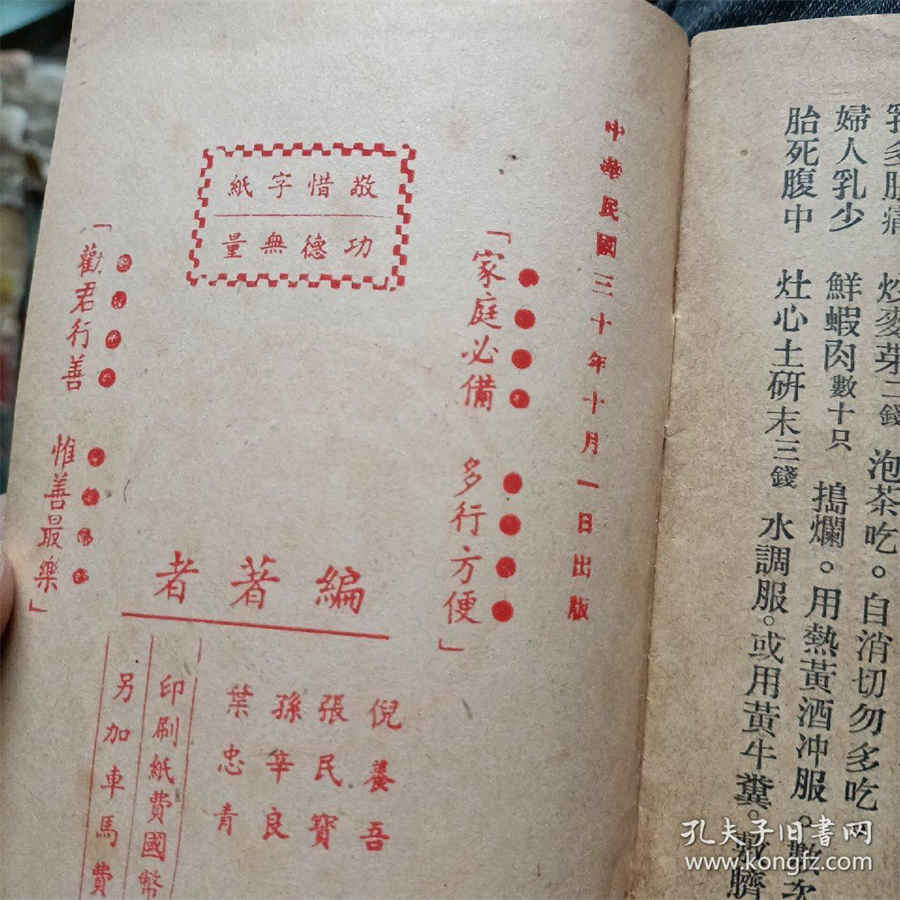 乳多脹痛 炒麥芽二錢 泡茶吃。自消切勿多吃
婦人乳少 鮮蝦肉數十只 搗爛。用熱黃酒冲服。數次
胎死腹中 灶心土研末三錢 水調服。或用黃牛糞。敷臍
中華民國三十年十月一日出版
「家庭必備 多行方便」
敬惜字紙
功德無量
「勸君行善 惟善最樂」
編著者
倪養吾
張民寶
孫筆良
葉忠青
印刷紙費國幣
另加車馬費
孔夫子旧书网
www.kongfz.com